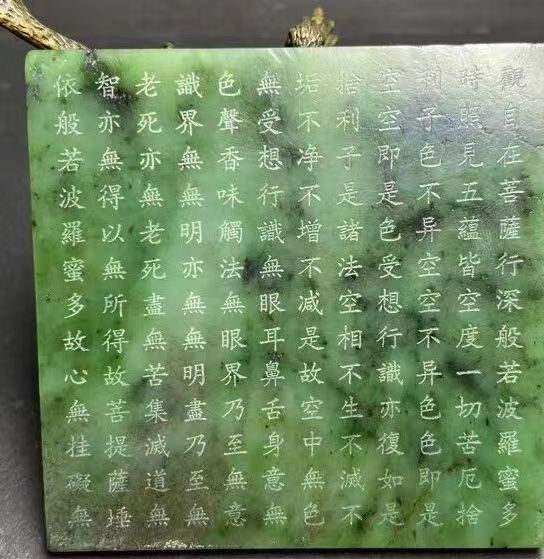 觀自在菩薩行深般若波羅蜜多
時照見五蘊皆空度一切苦厄捨
利子色不异空空不异色色即是
空空即是色受想行識亦復如是
捨利子是諸法空相不生不滅不
垢不净不增不减是故空中無色
無受想行識無眼耳鼻舌身意無
色聲香味觸法無眼界乃至無意
識界無無明亦無無明盡乃至無
老死亦無老死盡無苦集滅道無
智亦無得以無所得故菩提薩埵
依般若波羅蜜多故心無挂礙無